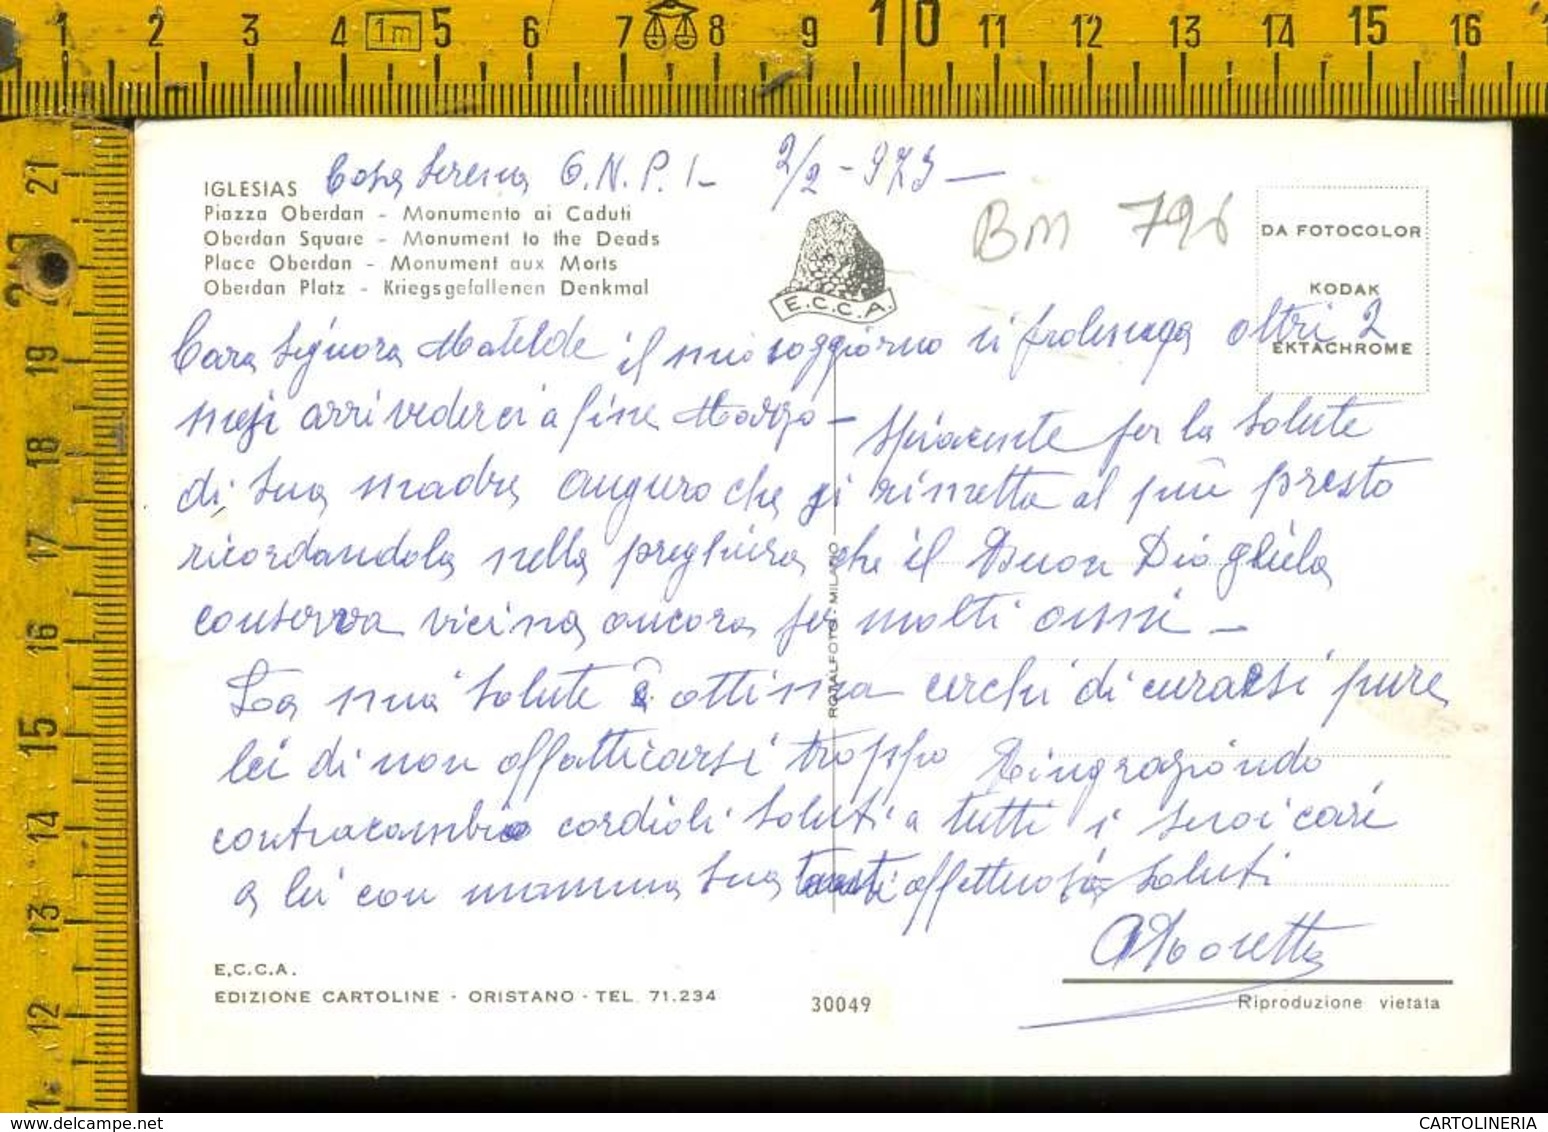 1 2 3 4 1m 5 6 7 8 9 10 11 12 13 14 15 16
21
20
19
18
17
16
15
14
13
12
Casa Serena O.N.P.I- 2/2-973—
IGLESIAS
Piazza Oberdan - Monumento ai Caduti
Oberdan Square - Monument to the Deads
Place Oberdan - Monument aux Morts
Oberdan Platz - Kriegsgefallenen Denkmal
E.C.C.A.
BM 796
DA FOTOCOLOR
KODAK
EKTACHROME
Cara Signora Matelde il mio soggiorno si prolunga oltri 2
mesi arrivederci a fine Marzo - spiacente per la salute
di sua madre auguro che si rimetta al più presto
ricordandola nella preghiera che il Buon Dio gliela
conserva vicina ancora per molti anni -
La mia salute è ottima cerchi di curarsi pure
lei di non affatticarsi troppo Ringraziando
contracambio cordiali saluti a tutti i suoi cari
a lei con mamma sua tanti affettuosi saluti
Moretta
ROTALFOTO - MILANO
E.C.C.A.
EDIZIONE CARTOLINE - ORISTANO - TEL. 71.234
30049
Riproduzione vietata
CARTOLINERIA